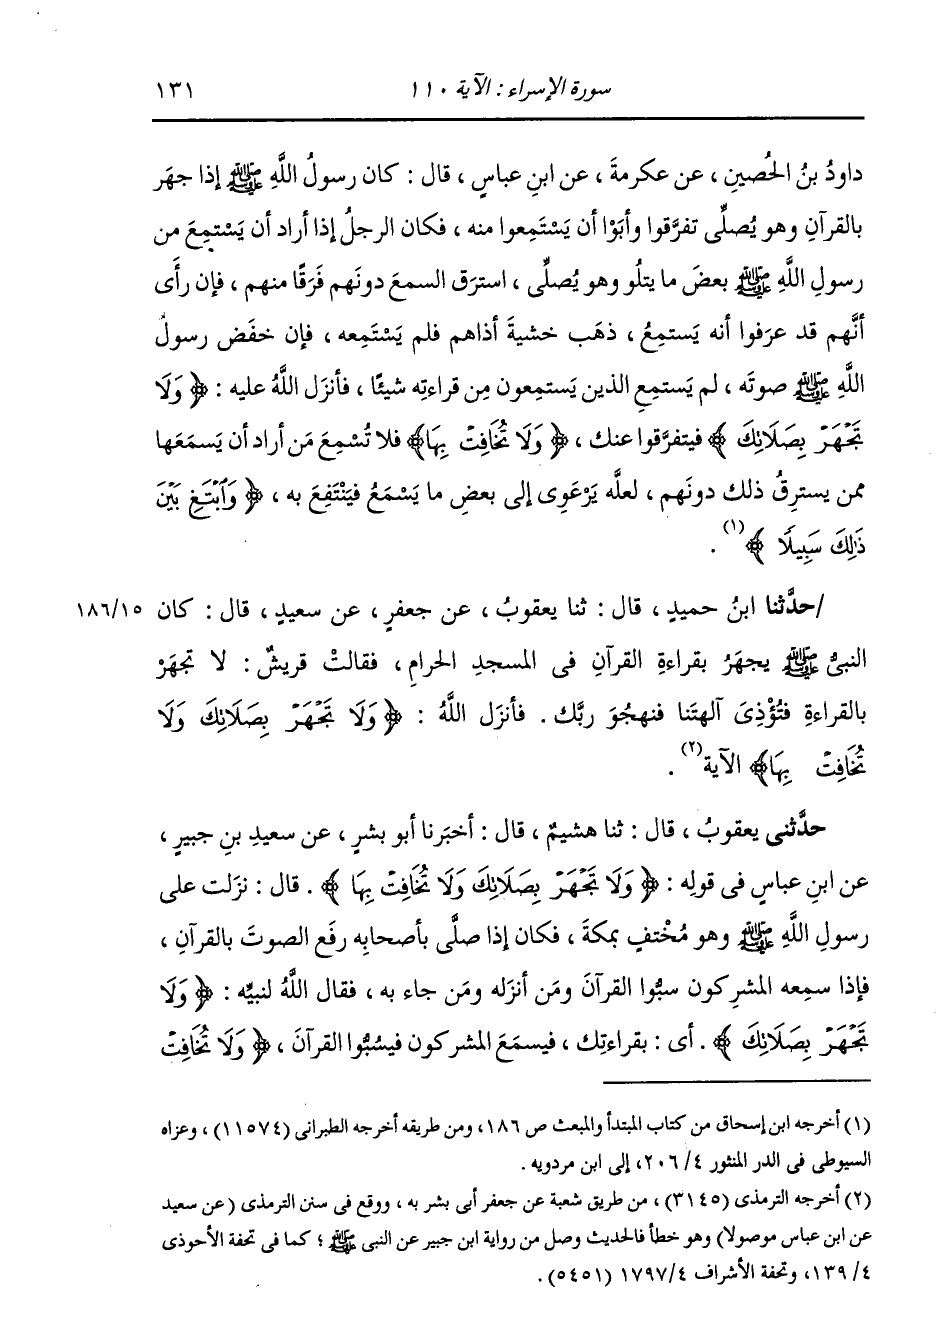 سورة الإسراء : الآية ١١٠ ١٣١
داودُ بنُ الحُصينِ ، عن عكرمةَ ، عن ابنِ عباسٍ ، قال : كان رسولُ اللَّهِ ﷺ إذا جهَر
بالقرآنِ وهو يُصلِّى تفرَّقوا وأبَوْا أن يَسْتَمِعوا منه ، فكان الرجلُ إذا أراد أن يَسْتمِعَ من
رسولِ اللَّهِ ﷺ بعضَ ما يتلُو وهو يُصلِّى ، استرَق السمعَ دونَهم فَرَقًا منهم ، فإن رأَى
أنَّهم قد عرَفوا أنه يَستمِعُ ، ذهَب خشيةَ أذاهم فلم يَسْتَمِعه ، فإن خفَض رسولُ
اللَّهِ ﷺ صوتَه ، لم يَستمِعِ الذين يَستمِعون مِن قراءتِه شيئًا ، فأنزَل اللَّهُ عليه : ﴿ وَلَا
تَجْهَرْ بِصَلَاتِكَ ﴾ فيتفرَّقوا عنك ، ﴿ وَلَا تُخَافِتْ بِهَا﴾ فلا تُسْمِعَ مَن أراد أن يَسمَعَها
ممن يسترِقُ ذلك دونَهم ، لعلَّه يَرْعَوِى إلى بعضِ ما يَسْمَعُ فيَنْتَفِعَ به ، ﴿ وَٱبْتَغِ بَيْنَ
ذَٰلِكَ سَبِيلًا ﴾(١) .
/حدَّثنا ابنُ حميدٍ ، قال : ثنا يعقوبُ ، عن جعفرٍ ، عن سعيدٍ ، قال : كان ١٨٦/١٥
النبىُّ ﷺ يجهَرُ بقراءةِ القرآنِ فى المسجدِ الحرامِ ، فقالتْ قريشٌ : لا تجهَرْ
بالقراءةِ فتُؤْذِىَ آلهتَنا فنهجُوَ ربَّك . فأنزَل اللَّهُ : ﴿ وَلَا تَجْهَرْ بِصَلَاتِكَ وَلَا
تُخَافِتْ بِهَا﴾ الآية(٢) .
حدَّثنى يعقوبُ ، قال : ثنا هشيمٌ ، قال : أخبَرنا أبو بشرٍ ، عن سعيدِ بنِ جبيرٍ ،
عن ابنِ عباسٍ فى قولِه : ﴿ وَلَا تَجْهَرْ بِصَلَاتِكَ وَلَا تُخَافِتْ بِهَا ﴾ . قال : نزَلت على
رسولِ اللَّهِ ﷺ وهو مُخْتفٍ بمكةَ ، فكان إذا صلَّى بأصحابِه رفَع الصوتَ بالقرآنِ ،
فإذا سمِعه المشرِكون سبُّوا القرآنَ ومَن أنزَله ومَن جاء به ، فقال اللَّهُ لنبيِّه : ﴿ وَلَا
تَجْهَرْ بِصَلَاتِكَ ﴾ . أى : بقراءتِك ، فيسمَعَ المشركون فيسُبُّوا القرآنَ ، ﴿ وَلَا تُخَافِتْ
(١) أخرجه ابن إسحاق من كتاب المبتدأ والمبعث ص ١٨٦، ومن طريقه أخرجه الطبرانى (١١٥٧٤) ، وعزاه
السيوطى فى الدر المنثور ٢٠٦/٤، إلى ابن مردويه .
(٢) أخرجه الترمذى (٣١٤٥) ، من طريق شعبة عن جعفر أبى بشر به ، ووقع فى سنن الترمذى (عن سعيد
عن ابن عباس موصولا) وهو خطأ فالحديث وصل من رواية ابن جبير عن النبى ﷺ ؛ كما فى تحفة الأحوذى
١٣٩/٤، وتحفة الأشراف ١٧٩٧/٤ (٥٤٥١).